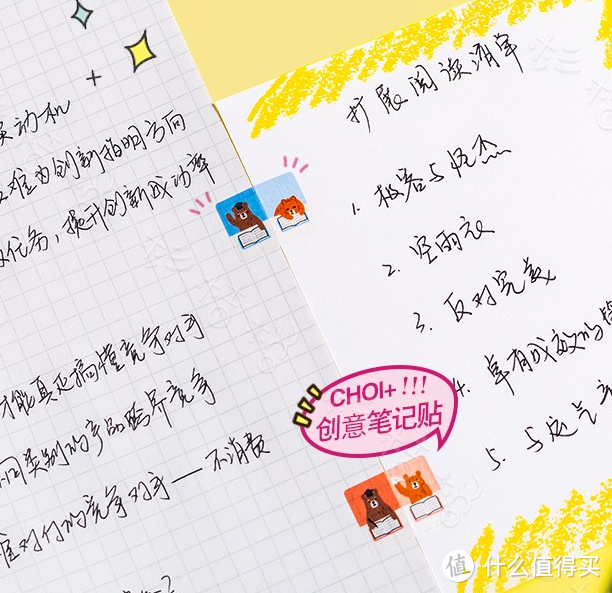 动机
难为创新指明方向
任务，提升创新成功率
才能真正搞懂竞争对手
不同类别的产品跨界竞争
难对付的竞争对手——不消费
扩展阅读清单
1.
2. 空雨衣
3. 反对完美
4. 卓有成效的管
5. 与运气
CHOI+ !!!
创意笔记贴
值 什么值得买